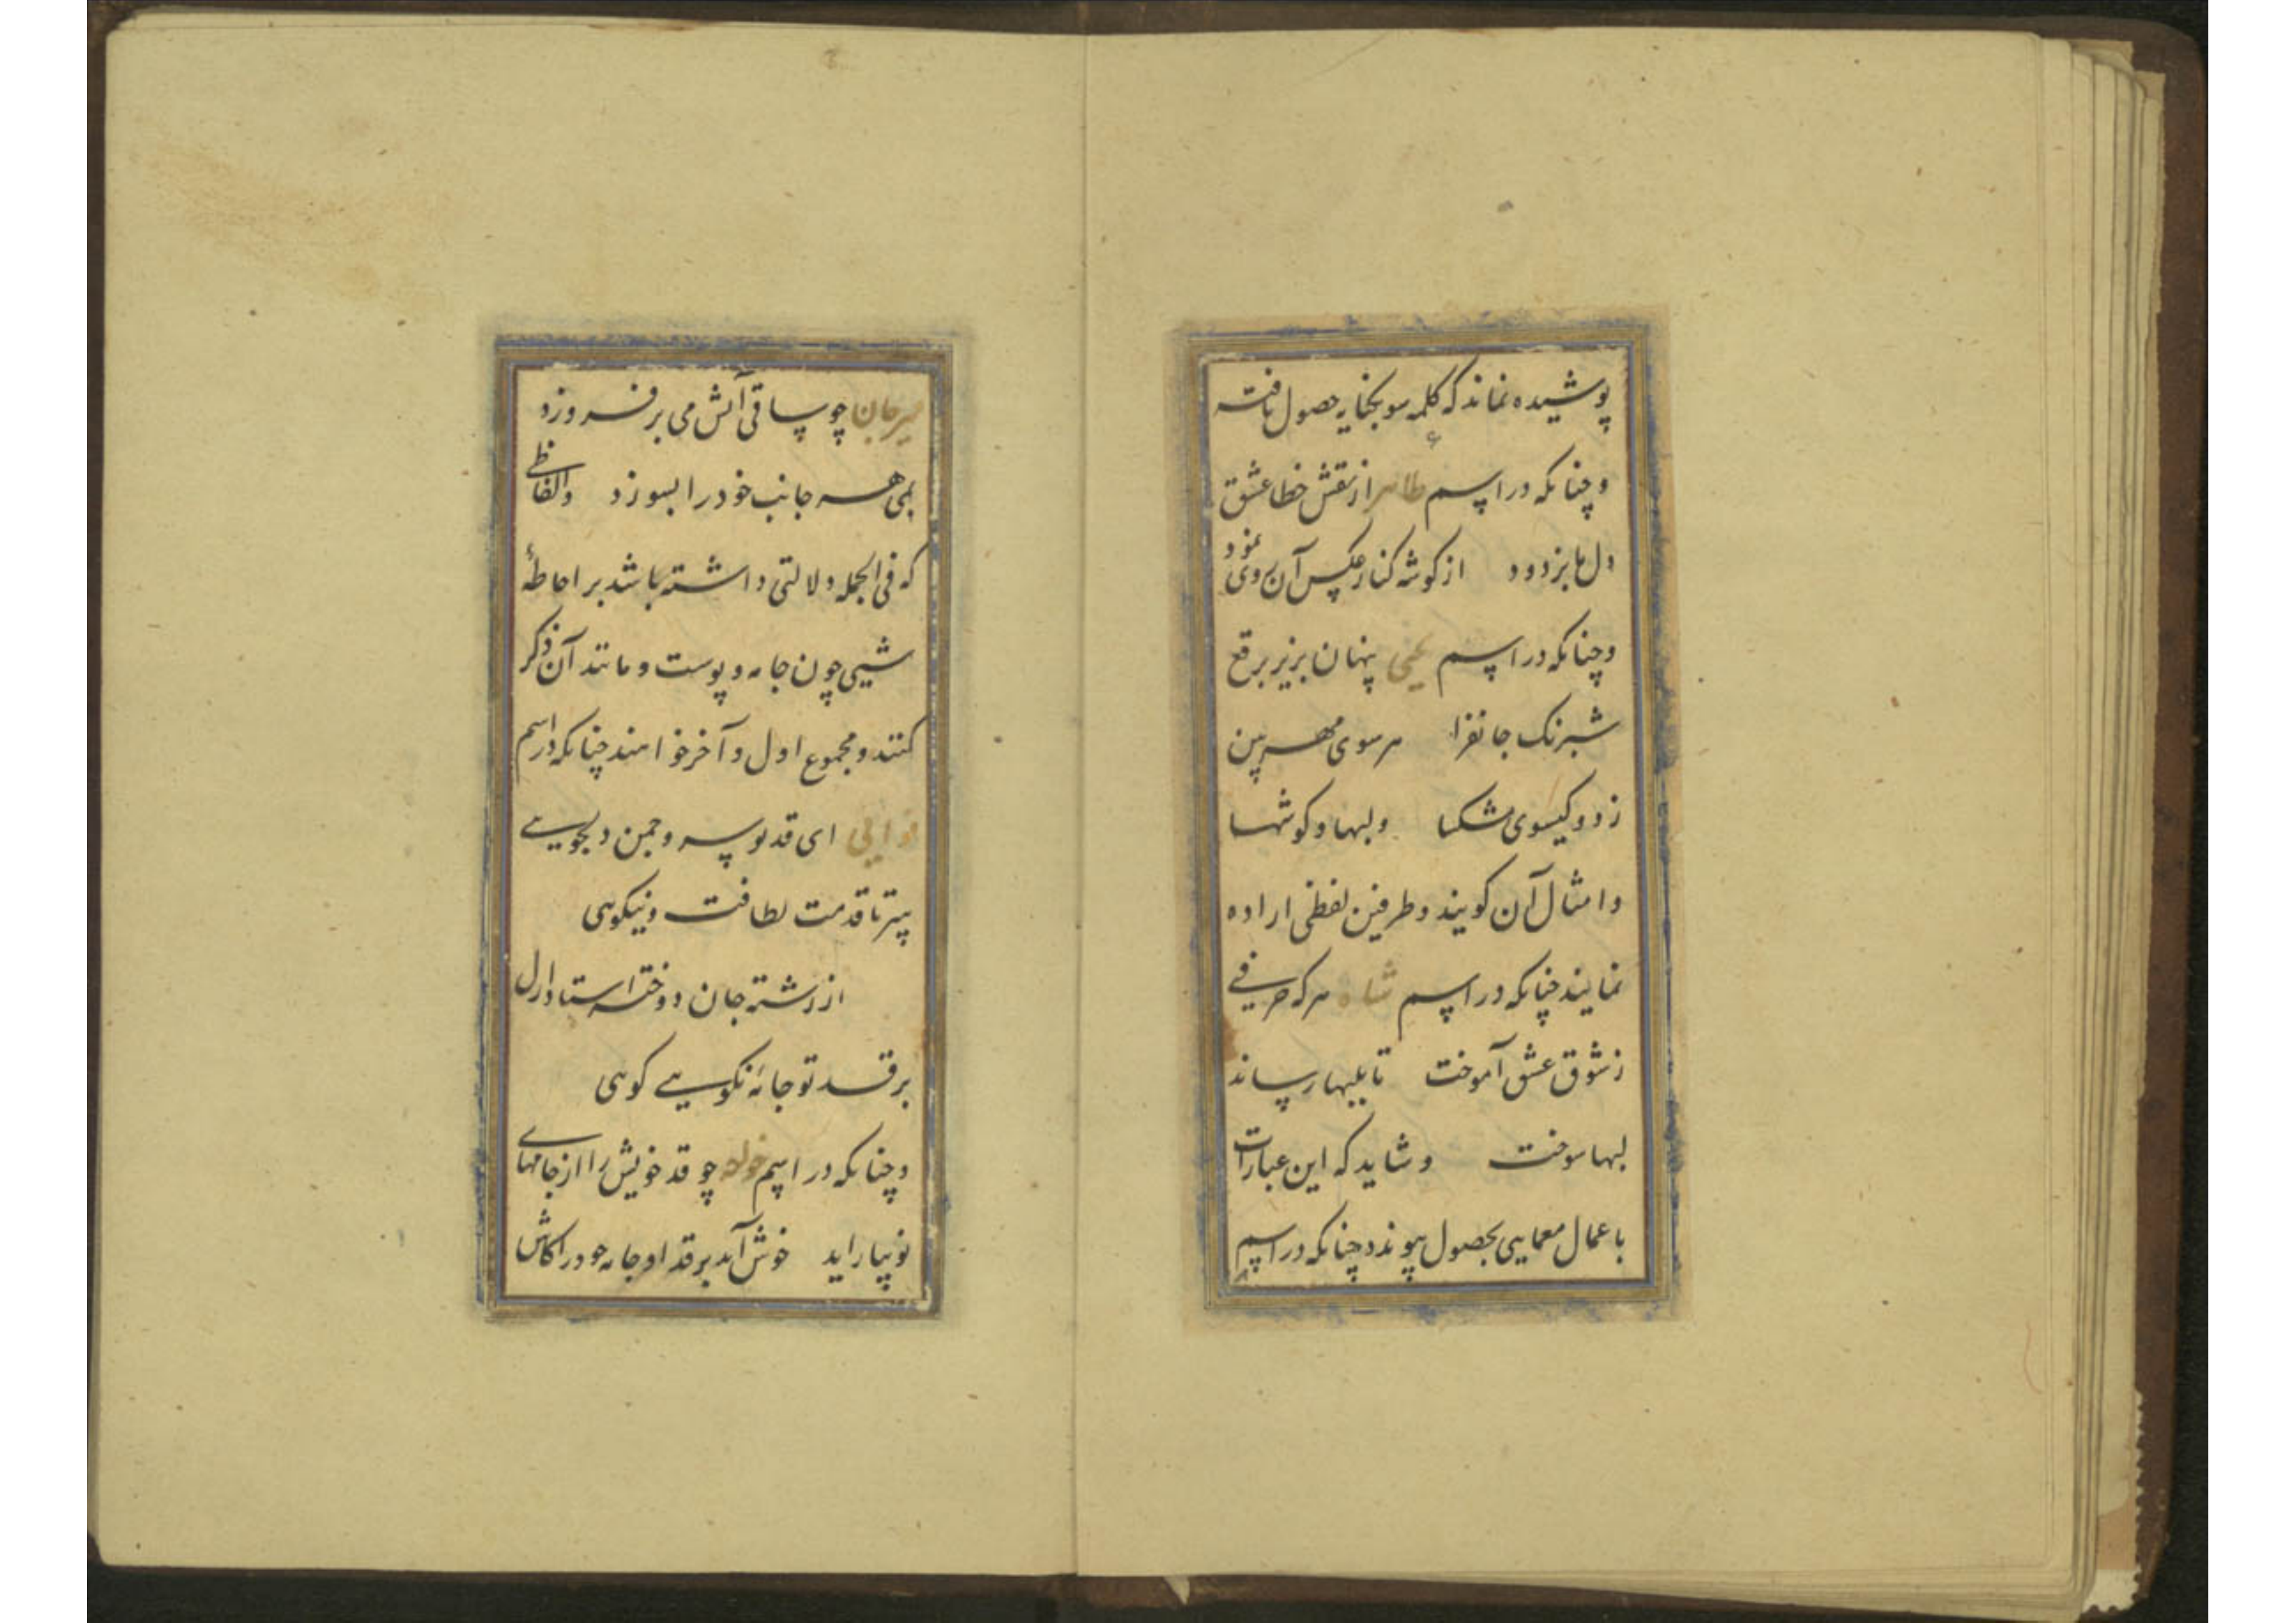 پوشیده نماند که کلمه سو بکنایه حصول یافته
و چنانکه در اسم طاهر از نقش خطا عشق
دل ما بزدود از کوشه کنار عکس آن روی نمود
و چنانکه در اسم یحیی پنهان بزیر برقع
شبرنک جانفزا هر سوی مهر بین
ز دو کیسوی مشکسا و لبها و کوشها
و امثال آن کویند و طرفین لفظی اراده
نمایند چنانکه در اسم شاه هر که حرفی
ز شوق عشق آموخت تا بلبها رساند
لبها سوخت و شاید که این عبارات
باعمال معمایی بحصول پیوندد چنانکه در اسم
میرجان چو ساقی آتش می برفروزد
بمی هر جانب خود را بسوزد و الفاظی
که فی الجمله دلالتی داشته باشد بر احاطهٔ
شیی چون جامه و پوست و مانند آن ذکر
کنند و مجموع اول و آخر خواهند چنانکه در اسم
نوایی ای قد تو سرو چمن دلجویی
سر تا قدمت لطافت و نیکویی
از رشته جان دوخته استاد ازل
بر قد تو جامهٔ نکویی کویی
و چنانکه در اسم چو قد خویش را از جامهای
نو بیاراید خوش آید بر قد او جامه خود را کاش